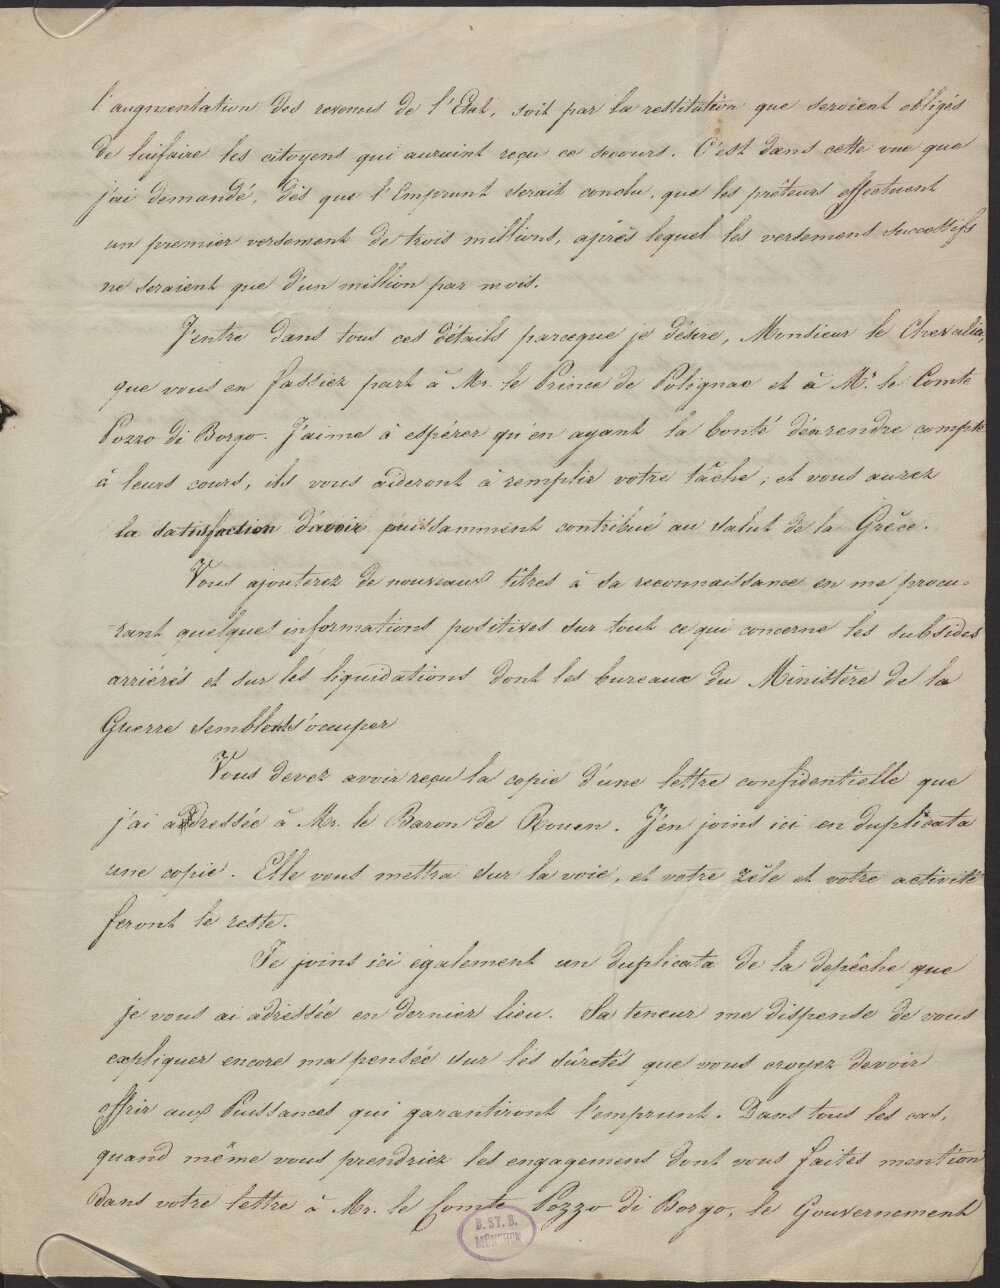 l'augmentation des revenus de l'Etat, soit par la restitution que seroient obligés
de luifaire les citoyens qui auraint reçu ce secours. C'est dans cette vue que
j'ai demandé, dès que l'Emprunt serait conclu, que les prêteurs effectuent
un premier versement de trois millions, après lequel les versement successifs
ne seraient que d'un million par mois.
J'entre dans tous ces détails parceque je désire, Monsieur le Chevalier,
que vous en fassiez part à Mr. le Prince de Polignac et à Mr. le Comte
Pozzo di Borgo. J'aime à espérer qu'en ayant la bonté d'enrendre compte
à leurs cours, ils vous aideront à remplir votre tâche; et vous aurez
la satisfaction d'avoir puissamment contribué au salut de la Grèce.
Vous ajouterez de nouveaux titres à sa reconnaissance en me procu-
-rant quelques informations positives sur tout ce qui concerne les subsides
arriérés et sur les liquidations dont les bureaux du Ministère de la
Guerre semblent s'occuper
Vous devez avoir reçu la copie d'une lettre confidentielle que
j'ai adressée à Mr. le Baron de Rouen. J'en joins ici en duplicata
une copie. Elle vous mettra sur la voie, et votre zèle et votre activité
feront le reste.
Je joins ici également un duplicata de la depêche que
je vous ai adressée en dernier lieu. Sa teneur me dispense de vous
expliquer encore ma pensée sur les sûretés que vous croyez devoir
offrir aux Puissances qui garantiront l'emprunt. Dans tous les cas,
quand même vous prendriez les engagemens dont vous faites mention
dans votre lettre à Mr. le Comte Pozzo di Borgo, le Gouvernement
B. ST. B.
MÜNCHEN